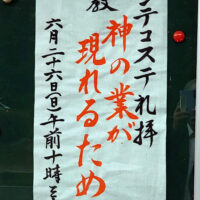 ンテコステ礼拝
教
神の業が
現れるため
六月二十六日(日)午前十時